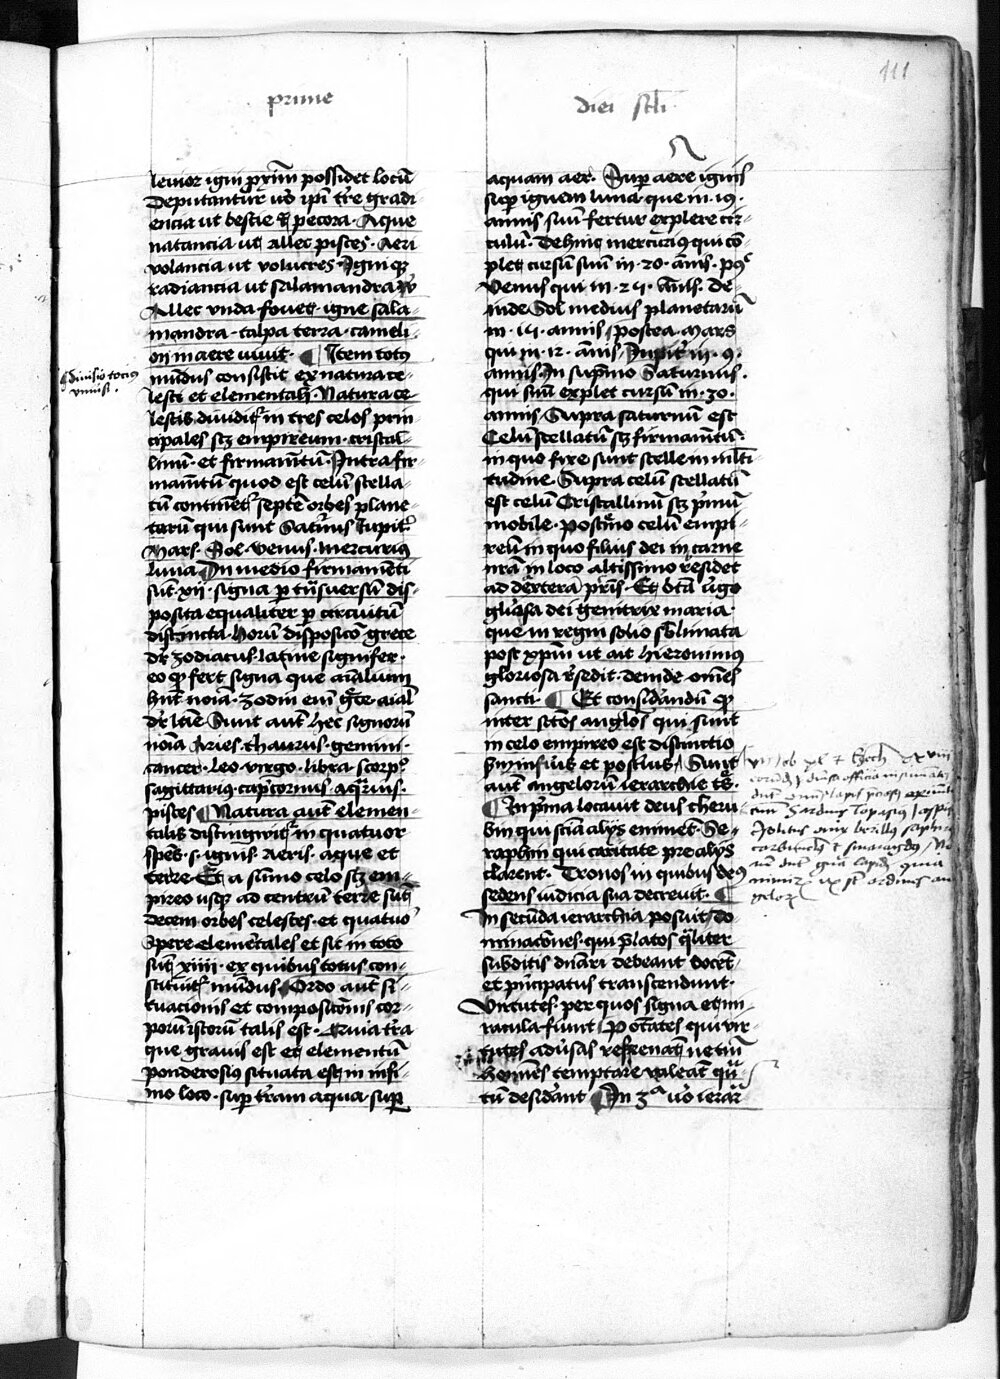 111
prime
diei scli
levior igni proximu possidet locu
Deputantur v̄o ipi tre gradi-
encia ut bestie & pecora. Aque
natancia ut allec pisces. Aeri
volancia ut volucres. Igni q̄
radiancia ut salamandra
Allec unda fovet. igne sala-
mandra. talpa terra. cameli-
on in aere vivit. ¶ Item totus
divisio tocius
mūdus consistit ex natura ce-
univsi.
lesti et elementali. Natura ce
lestis dividit in tres celos prin
cipales scz empireum. cristal-
linū. et firmamētū. Intra fir-
mamētū quod est celū stella-
tū continent septē orbes plane-
tarū qui sunt Saturnus Iupiter
Mars. Sol. venus. mercurius
luna In medio firmamēti
sūt .xii. signa p trāsversū dis-
posita equaliter p circuitū
distincta. Horū disposicō grece
dr zodiacus. latine signifer.
eo q̄ fert signa que aialium
hnt noīa. zodin em grece aial
dr latie Sunt aut hec signorū
noīa Aries. thaurus. gemini.
cancer. leo. virgo. libra scorpio
sagittarius. capcornus. aqrius.
pisces ¶ Natura aut elemen-
talis distingwit in quatuor
spes. s. ignis. aeris. aque et
terre. Et a sūmo celo scz em-
pireo usq ad centrū terre sut
decem orbes celestes. et quatuor
spere elemētales et sic in toto
sūt xiiii. ex quibus totus con-
stituit mūdus. Ordo aut si-
tuacionis et composicōnis cor-
porū istorū talis est. Quia tra
que gravis est et elementū
ponderosius situata est in infi-
mo loco. sup tram aqua. sup
aquam aer. Sup aere ignis
sup ignem luna. que in .19.
annis suū fertur explere cir-
culū. Dehinc mercurius qui cō-
plet cursū suū in .20. ānis.
Venus qui in .24. annis. de-
inde Sol medius planetarū
in .14. annis postea Mars
qui in .12. ānis. Iupiter in .9.
annis. In supmo Saturnus.
qui suū explet cursū in .30.
annis Supra saturnū est
Celū stellatū scz firmamētū.
in quo fixe sunt stelle in mlti-
tudine. Supra celū stellatū
est celū Cristallinū scz pmū
mobile. postremo celū empi-
reū in quo filius dei in carne
nra in loco altissimo residet
ad dexterā pris. Et bta virgo
gliosa dei genitrix maria.
que in regni solio sblimata
post xpm ut ait hieronimus
gloriosa resedit. deinde omēs
sancti. ¶ Et considandū q̄
inter sctos anglos qui sunt
in celo empireo est distinctio
sicut infius et postius. Sunt
aut angelorū ierarchie tes.
¶ In pma locavit deus cheru
bin qui sciā alijs eminet. Se-
raphin qui caritate pre alijs
clarent. Tronos in quibus deus
sedens iudicia sua decrevit. ¶
In secūda ierarchia posuit do
minacōnes. qui platos qliter
subditis dnari debeant docet.
et pncipatus transcendunt.
Virtutes. per quos signa et mi-
racula fiunt. Potestates qui vir-
tutes adusas refrenant ne tm
homies temptare valeat qua-
tū desidant ¶ In 3ª vo ierar
Sardius Topasius Iaspis
onix berillus saphir